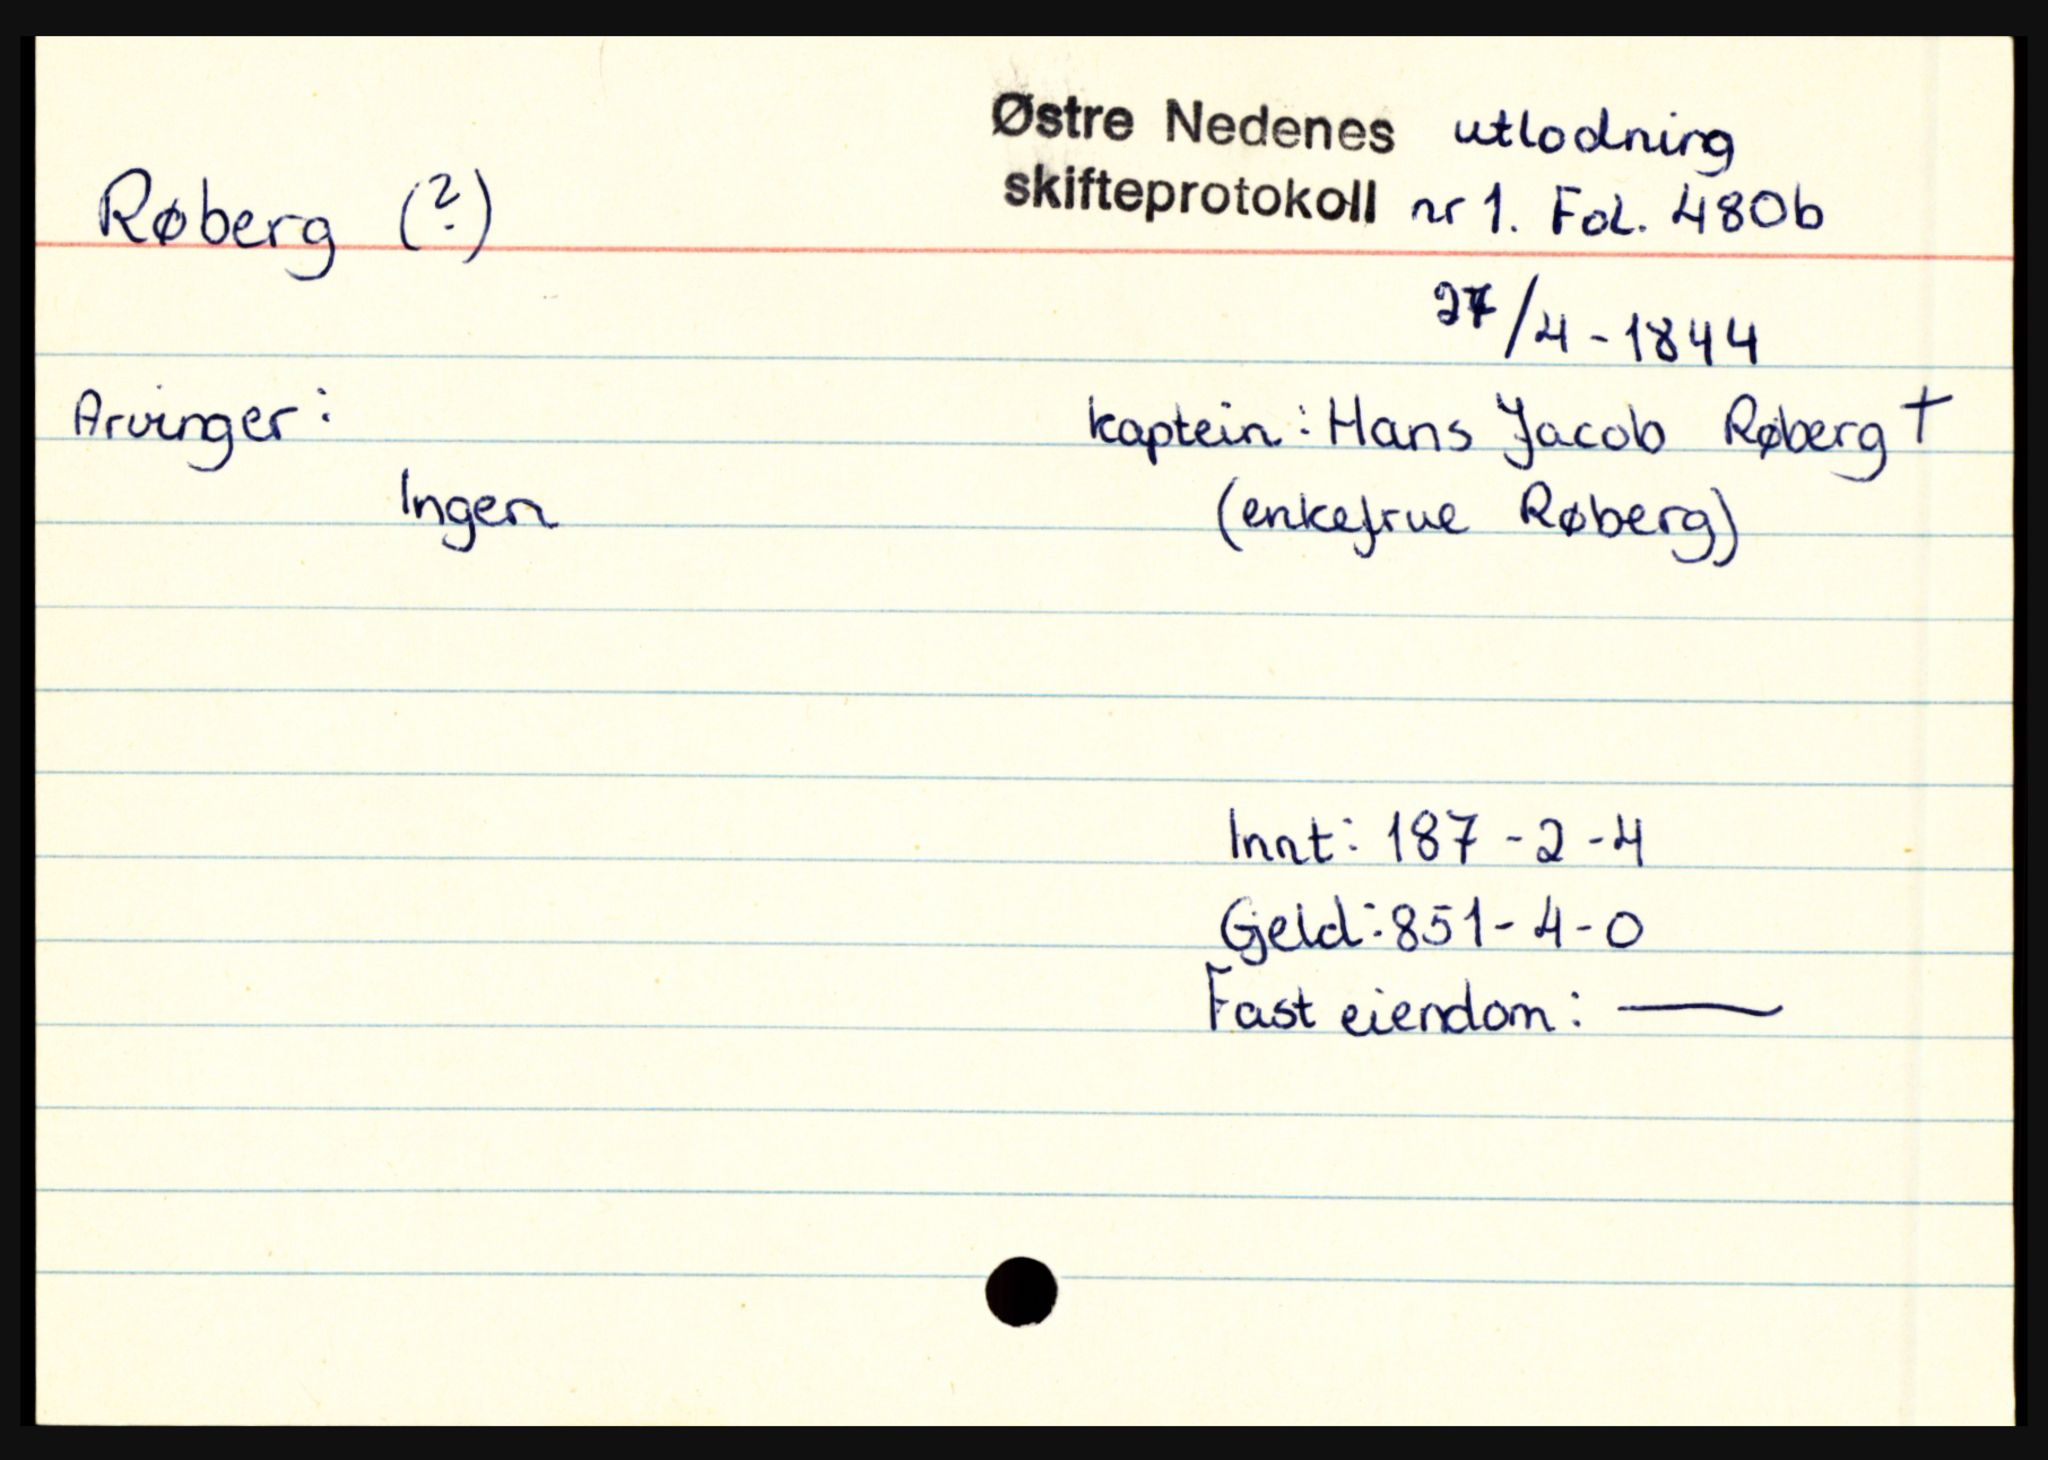 Østre Nedenes utlodning
skifteprotokoll nr 1. Fol. 480b
Røberg (?)
27/4-1844
Arvinger:
kaptein: Hans Jacob Røberg †
Ingen
(enkefrue Røberg)
Innt: 187-2-4
Gjeld: 851-4-0
Fast eiendom: —